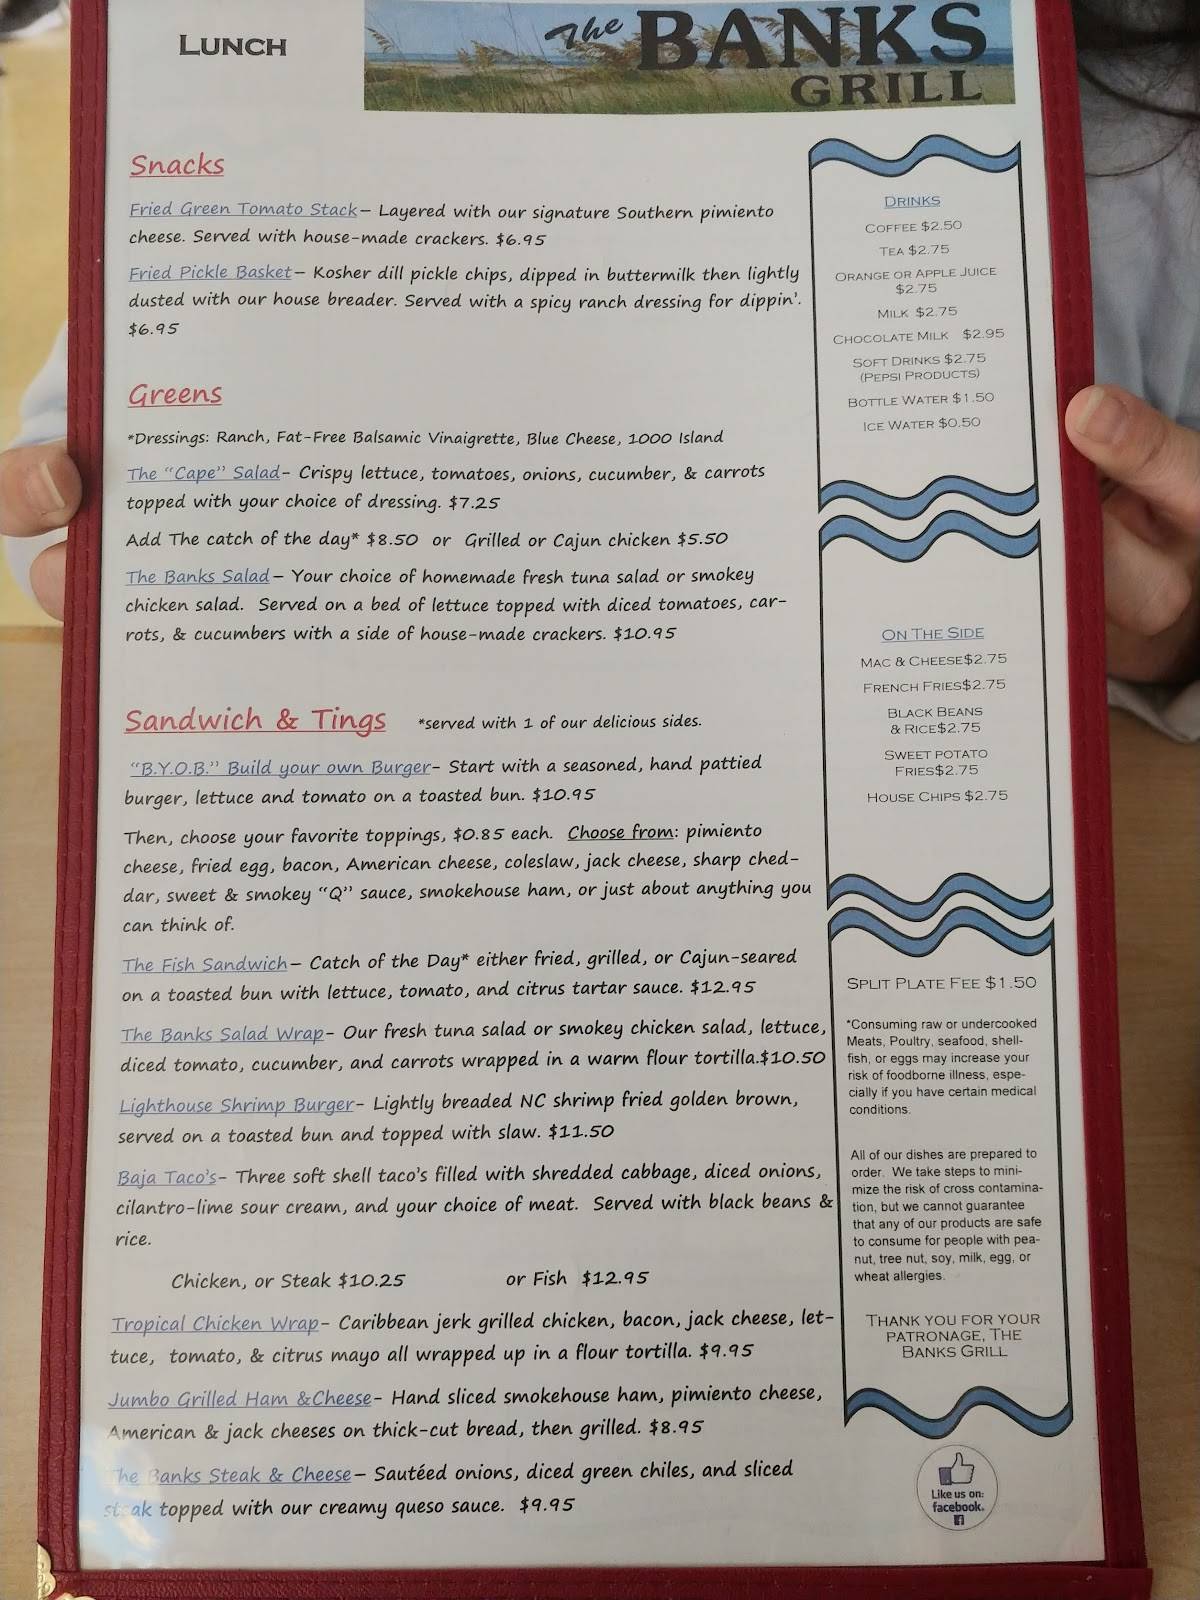 LUNCH
The BANKS
GRILL
Snacks
Fried Green Tomato Stack– Layered with our signature Southern pimiento
cheese. Served with house-made crackers. $6.95
Fried Pickle Basket– Kosher dill pickle chips, dipped in buttermilk then lightly
dusted with our house breader. Served with a spicy ranch dressing for dippin'.
$6.95
Greens
*Dressings: Ranch, Fat-Free Balsamic Vinaigrette, Blue Cheese, 1000 Island
The "Cape" Salad– Crispy lettuce, tomatoes, onions, cucumber, & carrots
topped with your choice of dressing. $7.25
Add The catch of the day* $8.50 or Grilled or Cajun chicken $5.50
The Banks Salad– Your choice of homemade fresh tuna salad or smokey
chicken salad. Served on a bed of lettuce topped with diced tomatoes, car-
rots, & cucumbers with a side of house-made crackers. $10.95
Sandwich & Tings *served with 1 of our delicious sides.
"B.Y.O.B." Build your own Burger– Start with a seasoned, hand pattied
burger, lettuce and tomato on a toasted bun. $10.95
Then, choose your favorite toppings, $0.85 each. Choose from: pimiento
cheese, fried egg, bacon, American cheese, coleslaw, jack cheese, sharp ched-
dar, sweet & smokey "Q" sauce, smokehouse ham, or just about anything you
can think of.
The Fish Sandwich– Catch of the Day* either fried, grilled, or Cajun-seared
on a toasted bun with lettuce, tomato, and citrus tartar sauce. $12.95
The Banks Salad Wrap– Our fresh tuna salad or smokey chicken salad, lettuce,
diced tomato, cucumber, and carrots wrapped in a warm flour tortilla.$10.50
Lighthouse Shrimp Burger– Lightly breaded NC shrimp fried golden brown,
served on a toasted bun and topped with slaw. $11.50
Baja Taco's– Three soft shell taco's filled with shredded cabbage, diced onions,
cilantro-lime sour cream, and your choice of meat. Served with black beans &
rice.
Chicken, or Steak $10.25 or Fish $12.95
Tropical Chicken Wrap– Caribbean jerk grilled chicken, bacon, jack cheese, let-
tuce, tomato, & citrus mayo all wrapped up in a flour tortilla. $9.95
Jumbo Grilled Ham &Cheese– Hand sliced smokehouse ham, pimiento cheese,
American & jack cheeses on thick-cut bread, then grilled. $8.95
The Banks Steak & Cheese– Sautéed onions, diced green chiles, and sliced
steak topped with our creamy queso sauce. $9.95
DRINKS
COFFEE $2.50
TEA $2.75
ORANGE OR APPLE JUICE
$2.75
MILK $2.75
CHOCOLATE MILK $2.95
SOFT DRINKS $2.75
(PEPSI PRODUCTS)
BOTTLE WATER $1.50
ICE WATER $0.50
ON THE SIDE
MAC & CHEESE$2.75
FRENCH FRIES$2.75
BLACK BEANS
& RICE$2.75
SWEET POTATO
FRIES$2.75
HOUSE CHIPS $2.75
SPLIT PLATE FEE $1.50
*Consuming raw or undercooked
Meats, Poultry, seafood, shell-
fish, or eggs may increase your
risk of foodborne illness, espe-
cially if you have certain medical
conditions.
All of our dishes are prepared to
order. We take steps to mini-
mize the risk of cross contamina-
tion, but we cannot guarantee
that any of our products are safe
to consume for people with pea-
nut, tree nut, soy, milk, egg, or
wheat allergies.
THANK YOU FOR YOUR
PATRONAGE, THE
BANKS GRILL
Like us on:
facebook.
f